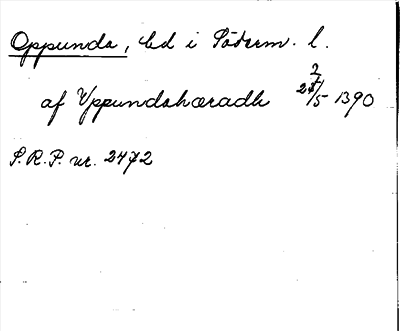 Oppunda, hd i Söderm. l.
af Yppundahæradh 27/5 1390
S.R.P. nr. 2472